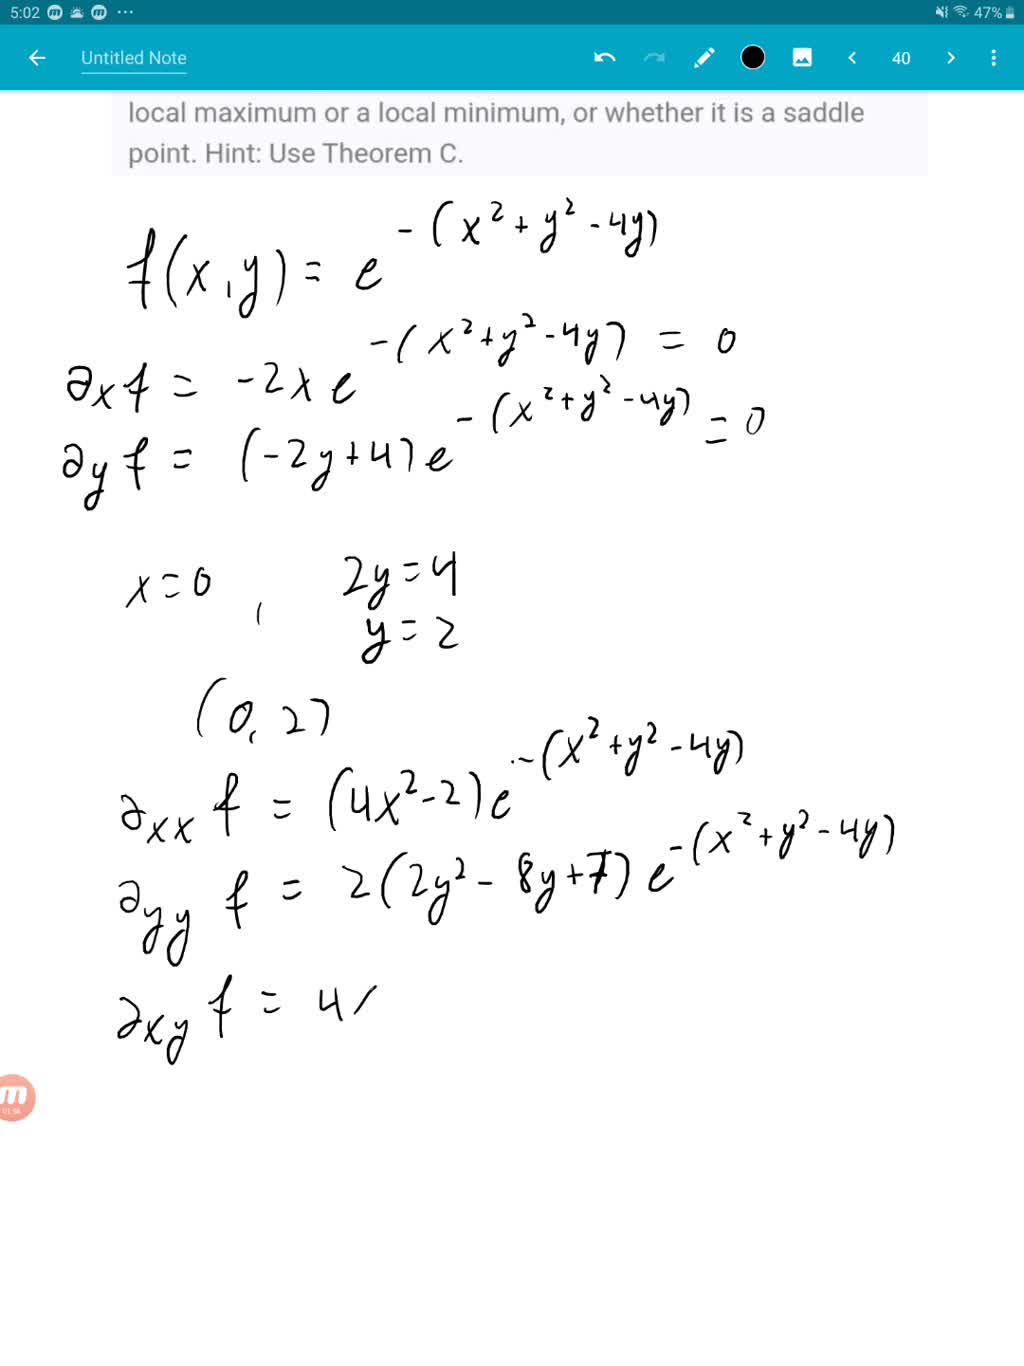 5:02 47%
Untitled Note 40
local maximum or a local minimum, or whether it is a saddle
point. Hint: Use Theorem C.
f(x,y) = e^-(x²+y²-4y)
∂x f = -2xe^-(x²+y²-4y) = 0
∂y f = (-2y+4)e^-(x²+y²-4y) = 0
x=0, 2y=4
y=2
(0,2)
∂xx f = (4x²-2)e^-(x²+y²-4y)
∂yy f = 2(2y²-8y+7)e^-(x²+y²-4y)
∂xy f = 4